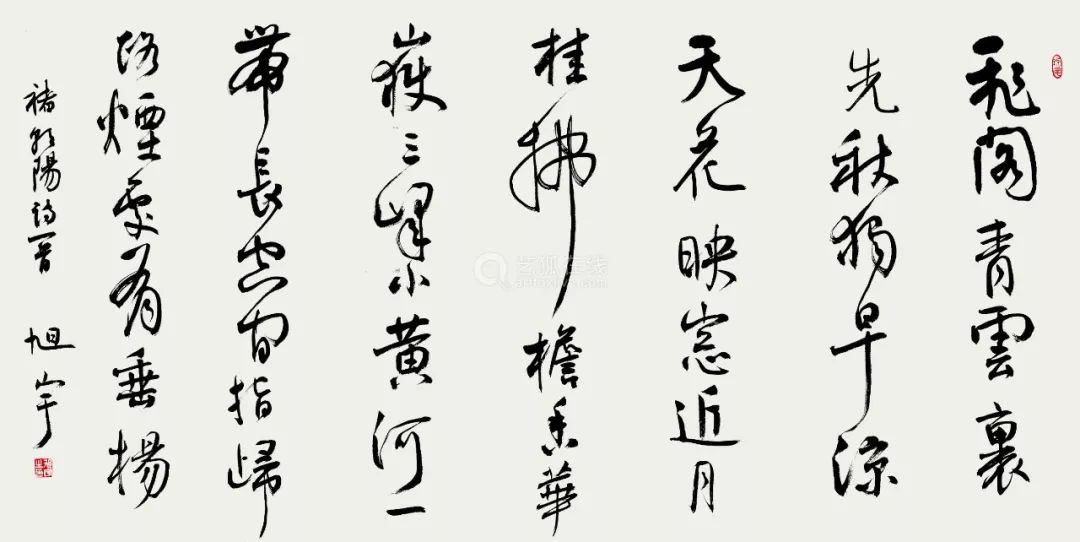 飛閣青雲裏
先秋獨早涼
天花映窓近月
桂拂檐香華
嶽三峰小黄河一
帶長空間指歸
路煙處有垂楊
褚朝陽詩一首 旭宇
艺狐在线